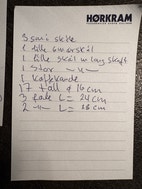 HØRKRAM
3 små skåle
1 lille smørskål
1 lille skål m lang skaft
1 stor -"-
1 kaffekande
17 tall ø 16 cm
3 fade L = 24 cm
2 -"- L = 28 cm